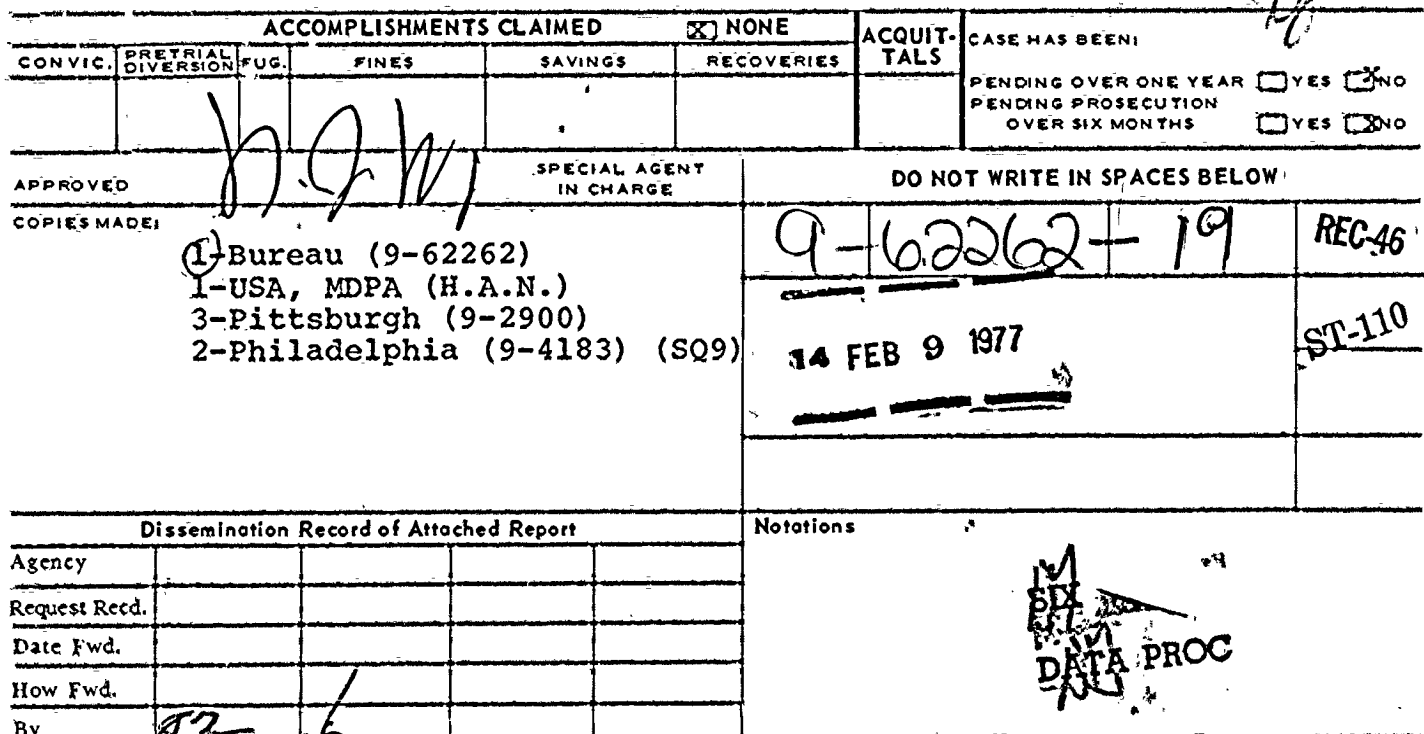 ACCOMPLISHMENTS CLAIMED [X] NONE
ACQUIT-
TALS
CONVIC. PRETRIAL DIVERSION FUG. FINES SAVINGS RECOVERIES
CASE HAS BEEN:
PENDING OVER ONE YEAR [ ] YES [X] NO
PENDING PROSECUTION
OVER SIX MONTHS [ ] YES [X] NO
APPROVED
SPECIAL AGENT
IN CHARGE
DO NOT WRITE IN SPACES BELOW
COPIES MADE:
1-Bureau (9-62262)
1-USA, MDPA (H.A.N.)
3-Pittsburgh (9-2900)
2-Philadelphia (9-4183) (SQ9)
9-62262-19
REC-46
14 FEB 9 1977
ST-110
Dissemination Record of Attached Report
Agency
Request Recd.
Date Fwd.
How Fwd.
By
Notations
SIX
DATA PROC